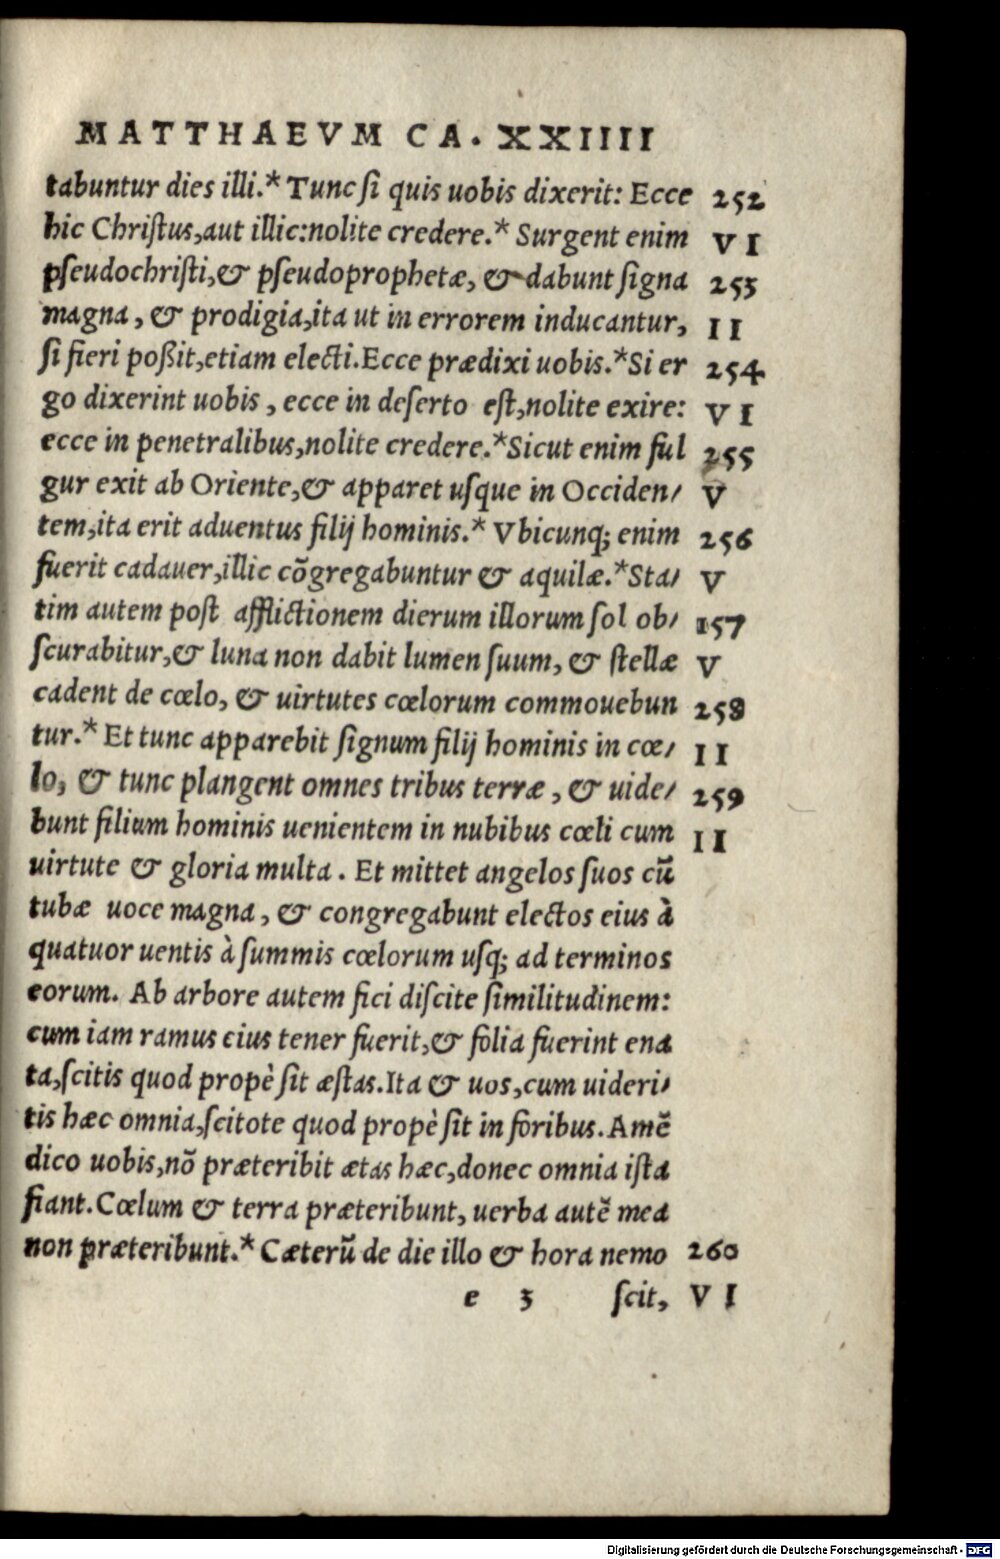 MATTHAEVM CA. XXIIII
tabuntur dies illi.* Tunc ſi quis uobis dixerit: Ecce 252
hic Chriſtus,aut illic:nolite credere.* Surgent enim VI
pſeudochriſti,& pſeudoprophetæ, & dabunt ſigna 253
magna, & prodigia,ita ut in errorem inducantur, II
ſi fieri poßit,etiam electi.Ecce prædixi uobis.*Si er 254
go dixerint uobis, ecce in deſerto eſt,nolite exire: VI
ecce in penetralibus,nolite credere.*Sicut enim ful 255
gur exit ab Oriente,& apparet uſque in Occiden/ V
tem,ita erit aduentus filij hominis.* Vbicunq; enim 256
fuerit cadauer,illic cõgregabuntur & aquilæ.*Sta/ V
tim autem poſt afflictionem dierum illorum ſol ob/ 157
ſcurabitur,& luna non dabit lumen ſuum, & ſtellæ V
cadent de cœlo, & uirtutes cœlorum commouebun 258
tur.* Et tunc apparebit ſignum filij hominis in cœ/ II
lo, & tunc plangent omnes tribus terræ, & uide/ 259
bunt filium hominis uenientem in nubibus cœli cum II
uirtute & gloria multa. Et mittet angelos ſuos cũ
tubæ uoce magna, & congregabunt electos eius à
quatuor uentis à ſummis cœlorum uſq; ad terminos
eorum. Ab arbore autem fici diſcite ſimilitudinem:
cum iam ramus eius tener fuerit,& folia fuerint ena
ta,ſcitis quod propè ſit æſtas.Ita & uos,cum uideri/
tis hæc omnia,ſcitote quod propè ſit in foribus.Amẽ
dico uobis,nõ præteribit ætas hæc,donec omnia iſta
fiant.Cœlum & terra præteribunt, uerba autẽ mea
non præteribunt.* Cæterũ de die illo & hora nemo 260
e 3 ſcit, VI
Digitalisierung gefördert durch die Deutsche Forschungsgemeinschaft - DFG